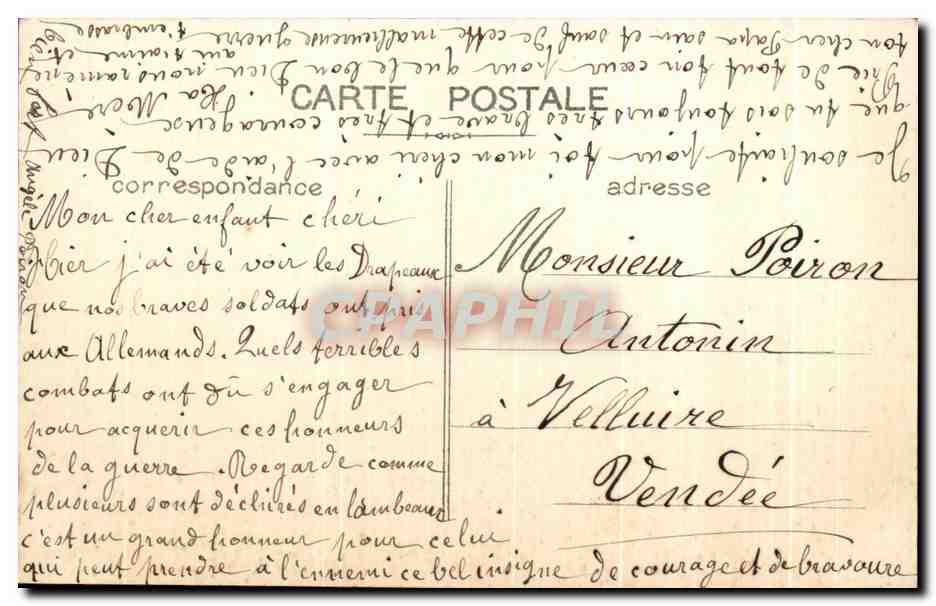 CARTE POSTALE
correspondance
adresse
Mon cher enfant chéri
Hier j'ai été voir les Drapeaux
que nos braves soldats ont pris
aux Allemands. Quels terribles
combats ont dû s'engager
pour acquerir ces honneurs
de la guerre. Regarde comme
plusieurs sont déchirés en lambeaux
c'est un grand honneur pour celui
qui peut prendre à l'ennemi ce bel insigne de courage et de bravoure
Je souhaite pour toi mon chéri avec l'aide de Dieu
que tu sois toujours très brave et très courageux
Prie de tout ton cœur pour que le bon Dieu nous ramène
ton cher Papa sain et sauf de cette malheureuse guerre
Ta Mère
qui t'aime et
t'embrasse
bien fort
Poiron
Monsieur Poiron
Antonin
à Velluire
Vendée
CPAPHIL